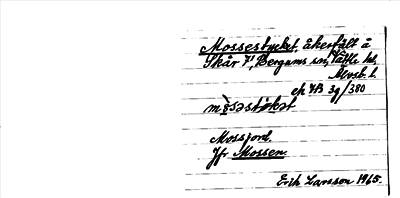 Mossestycket, åkerfält å
Skår 7¹, Bergums sn, Vättle hd,
Älvsb. l.
ek 7B 3g/380
mɔ̀səstøkət
Mossjord.
Jfr Mossen.
Erik Larsson 1965.